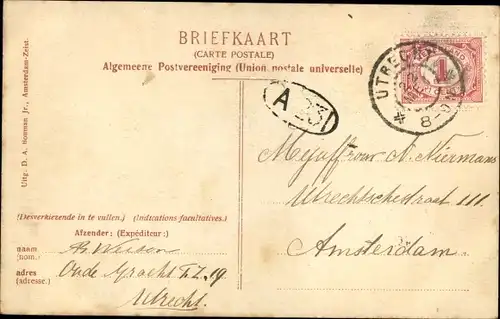 BRIEFKAART
(CARTE POSTALE)
Algemeene Postvereeniging (Union postale universelle)
UTRECHT
8-9N
4
1
A 23
Uitg. D. A. Sonman Jr., Amsterdam-Zeist.
Mejuffrouw N. Niermans
Utrechtschestraat 111
Amsterdam.
(Desverkiezende in te vullen.) (Indications facultatives.)
Afzender: (Expéditeur:)
naam
(nom.)
adres Oude Gracht T.Z. 19
(adresse.) Utrecht.